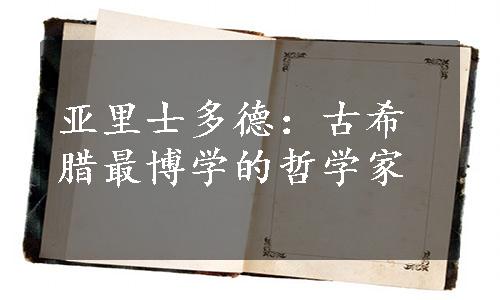 亚里士多德：古希
腊最博学的哲学家